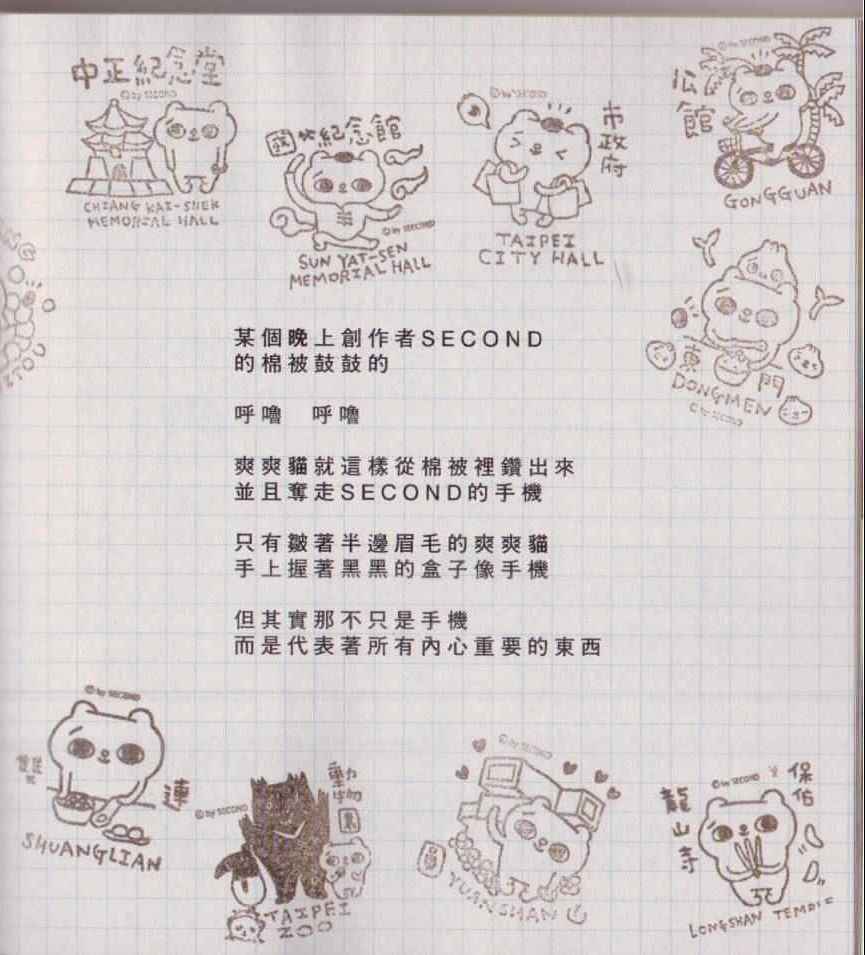 中正紀念堂
© by SECOND
CHIANG KAI-SHEK
MEMORIAL HALL
國父紀念館
© by SECOND
SUN YAT-SEN
MEMORIAL HALL
© by SECOND
市政府
TAIPEI
CITY HALL
© by SECOND
公館
GONGGUAN
東門
DONGMEN
© by SECOND
某個晚上創作者SECOND
的棉被鼓鼓的
呼嚕 呼嚕
爽爽貓就這樣從棉被裡鑽出來
並且奪走SECOND的手機
只有皺著半邊眉毛的爽爽貓
手上握著黑黑的盒子像手機
但其實那不只是手機
而是代表著所有內心重要的東西
© by SECOND
雙連
SHUANGLIAN
© by SECOND
動物園
TAIPEI
ZOO
© by SECOND
YUANSHAN
© by SECOND
保佑
龍山寺
LONGSHAN TEMPLE